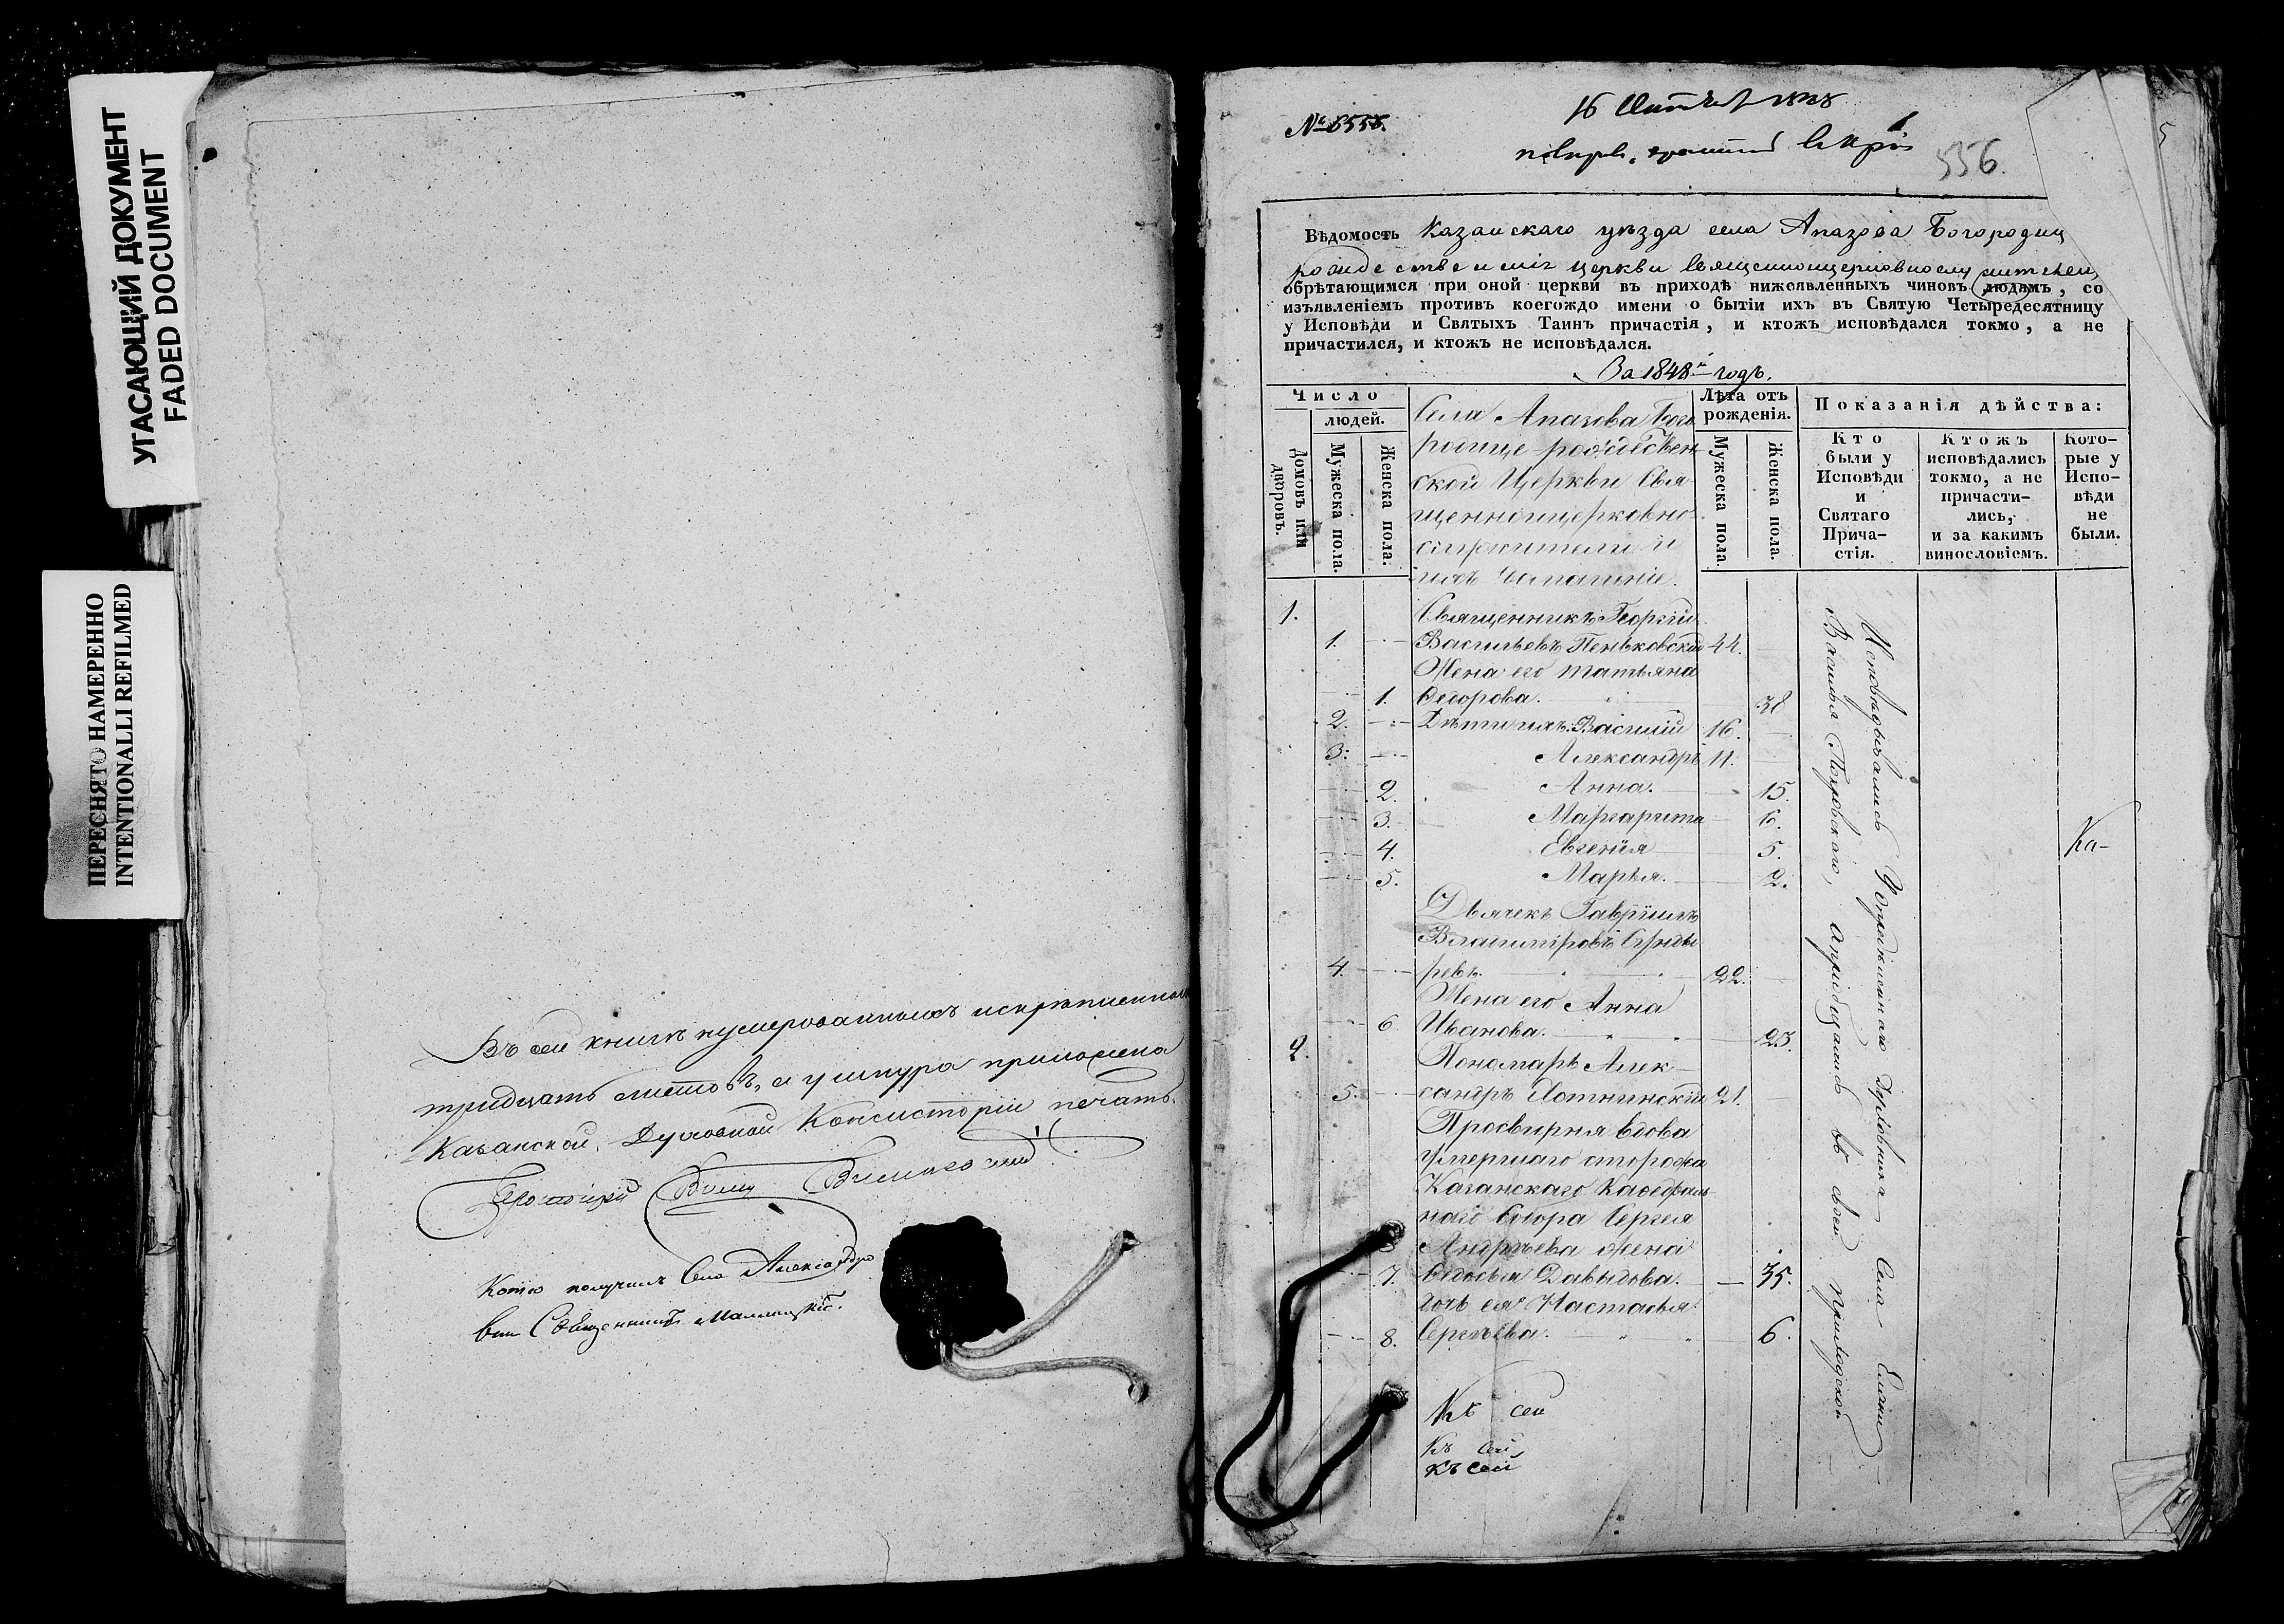 УГАСАЮЩИЙ ДОКУМЕНТ
FADED DOCUMENT
ПЕРЕСНЯТО НАМЕРЕННО
INTENTIONALLI REFILMED
Въ сей книгѣ нумерованныхъ искрѣпленныхъ
тридцать листовъ, и у шнура приложена
Казанской Духовной Консисторіи печать.
Протоіерей
Копію получилъ Села Александро
вки Священникъ
№ 6555.
16
556.
Вѣдомость Казанскаго уѣзда села Апазова Богородиц
рождественской церкви Священноцерковнослужителей,
обрѣтающимся при оной церкви въ приходѣ нижеявленныхъ чиновъ людямъ, со
изъявленіемъ противъ коегождо имени о бытіи ихъ въ Святую Четыредесятницу
у Исповѣди и Святыхъ Таинъ причастія, и ктожъ исповѣдался токмо, а не
причастился, и ктожъ не исповѣдался.
За 1848й годъ.
Число
людей.
Домовъ или дворовъ.
Мужеска пола.
Женска пола.
Села Апазова Бого
родице рождествен
ской Церкви Свя
щенноцерковно
служители и
ихъ домашніе.
Лѣта отъ рожденія.
Мужеска пола.
Женска пола.
Показанія дѣйства:
Кто были у Исповѣди и Святаго Прича-стія.
Ктожъ исповѣдались токмо, а не причасти-лись, и за какимъ винословіемъ.
Кото-рые у Испо-вѣди не были.
1.
Священникъ Георгій
1. Васильевъ Пеньковскій 44.
Жена его Татьяна
1. Федорова. 38
2. Дѣти ихъ: Василій 16.
3. Александръ 11.
2. Анна. 15.
3. Маргарита 6.
4. Евгенія 5.
5. Марья. 2.
Дьячекъ Гавріилъ
Владиміровъ
4. ревъ. 22.
Жена его Анна
6 Иванова. 23.
2.
Пономарь Алек
5. сандръ Хотнинскій 21.
Просвирня вдова
умершаго сторожа
Казанскаго Каѳедраль
наго Собора Сергея
Андрѣева жена
7. Федосья Давыдова. 35.
дочь ея Настасья
8. Сергѣева. 6.
Къ сей
Къ сей
Къ сей
Исповѣдывались у Села
Василья и пріобщались въ своей приходской
Ка-